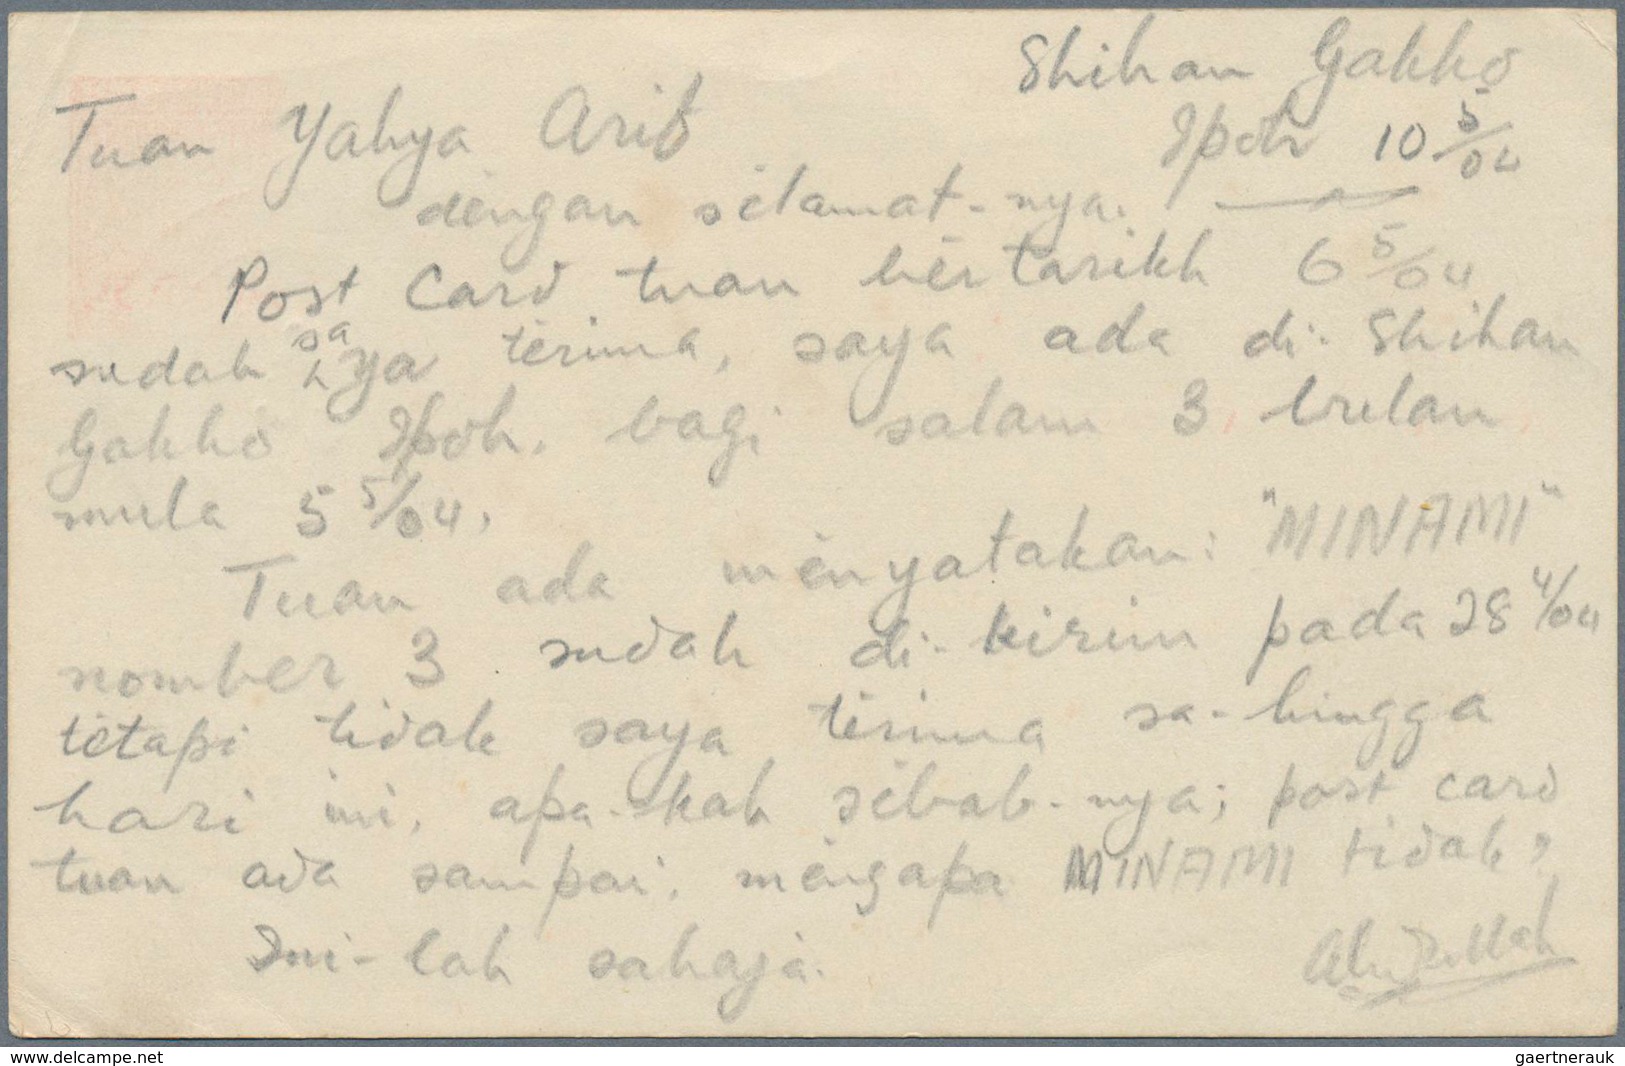 Shihan Gakko
Ipoh 10 5/04
Tuan Yahya Arif
dĕngan sĕlamat-nya.
Post Card tuan bĕrtarikh 6 5/04
sudah saya tĕrima, saya ada di-Shihan
Gakko Ipoh. bagi salam 3 bulan
mula 5 5/04.
Tuan ada mĕnyatakan: "MINAMI"
nomber 3 sudah di-kirim pada 28 4/04
tĕtapi tidak saya tĕrima sa-hingga
hari ini, apa-kah sĕbab-nya; post card
tuan ada sampai, mĕngapa MINAMI tidak?
Ini-lah sahaja.
Abdullah
www.delcampe.net
gaertnerauk